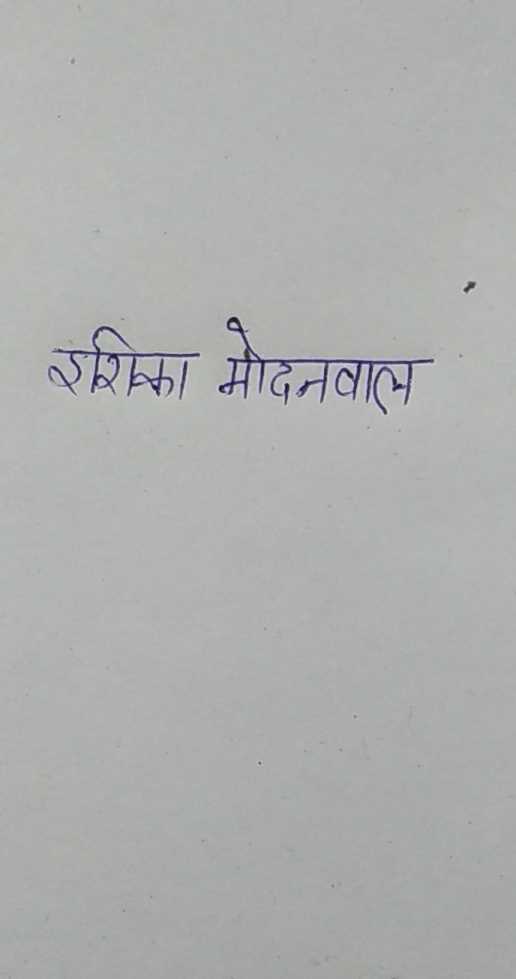 इशिका मोदनवाल